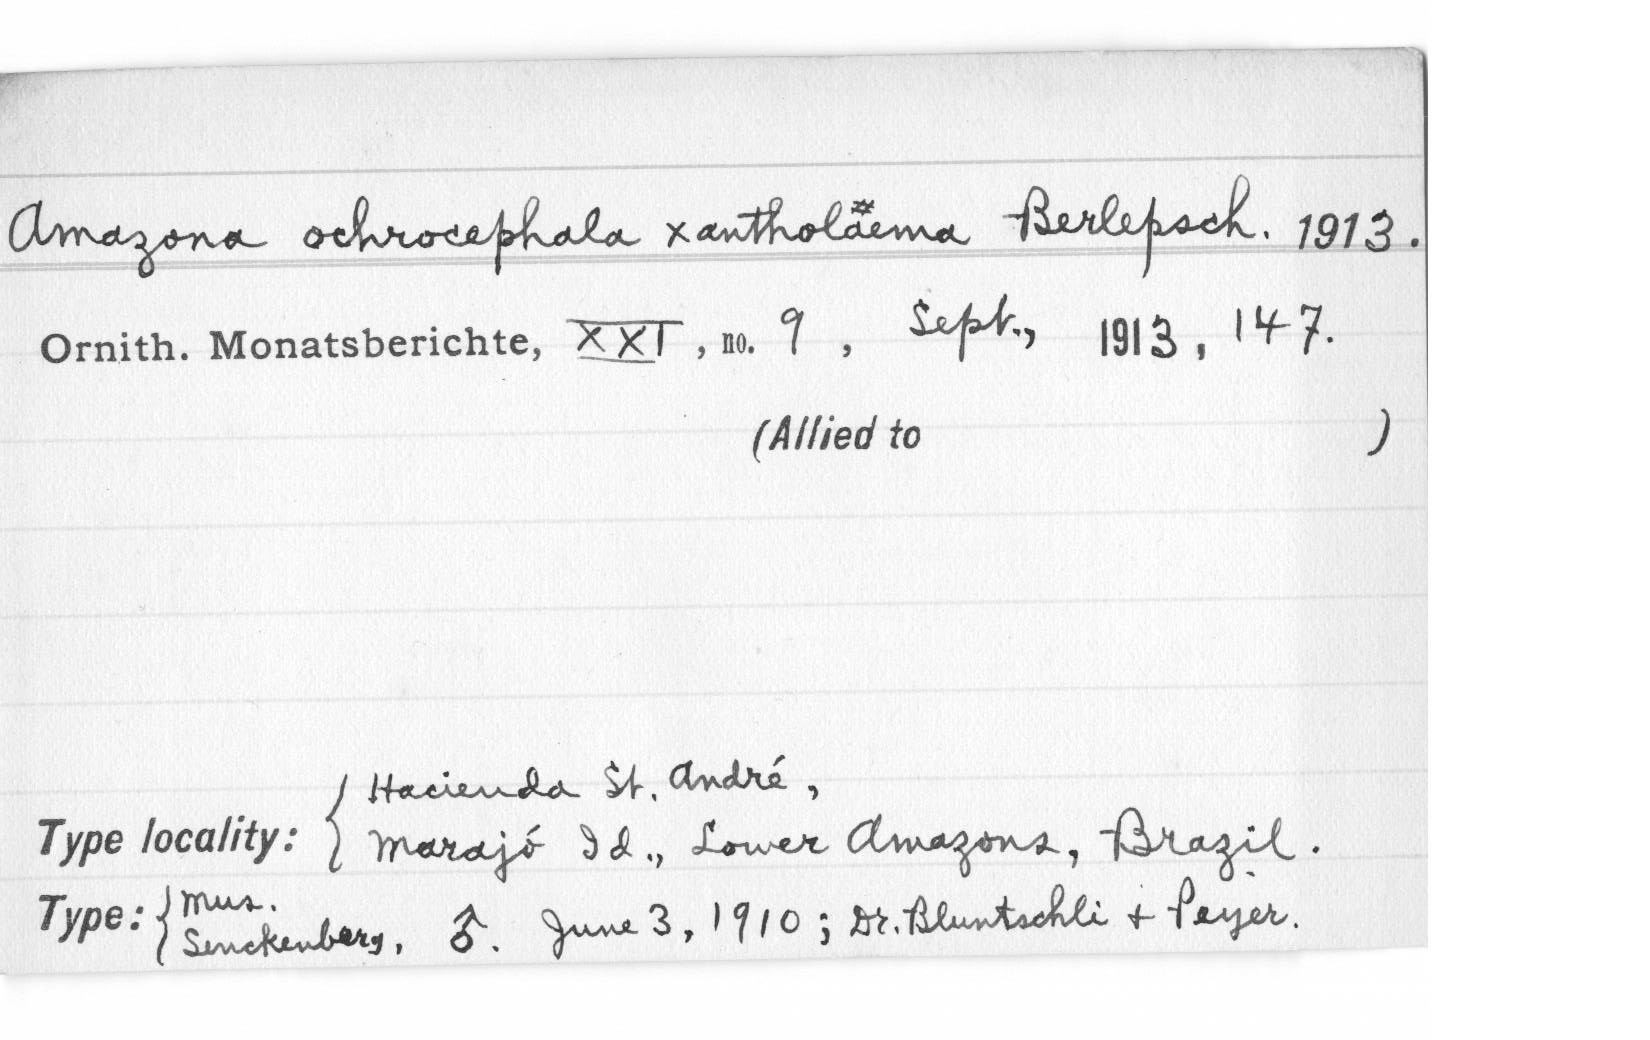 Amazona ochrocephala xantholäema Berlepsch. 1913.
Ornith. Monatsberichte, XXI, no. 9, Sept., 1913, 147.
(Allied to )
Type locality: { Hacienda St. André,
Marajó Id., Lower Amazons, Brazil.
Type: { Mus.
Senckenberg, ♂. June 3, 1910; Dr. Bluntschli + Peyer.